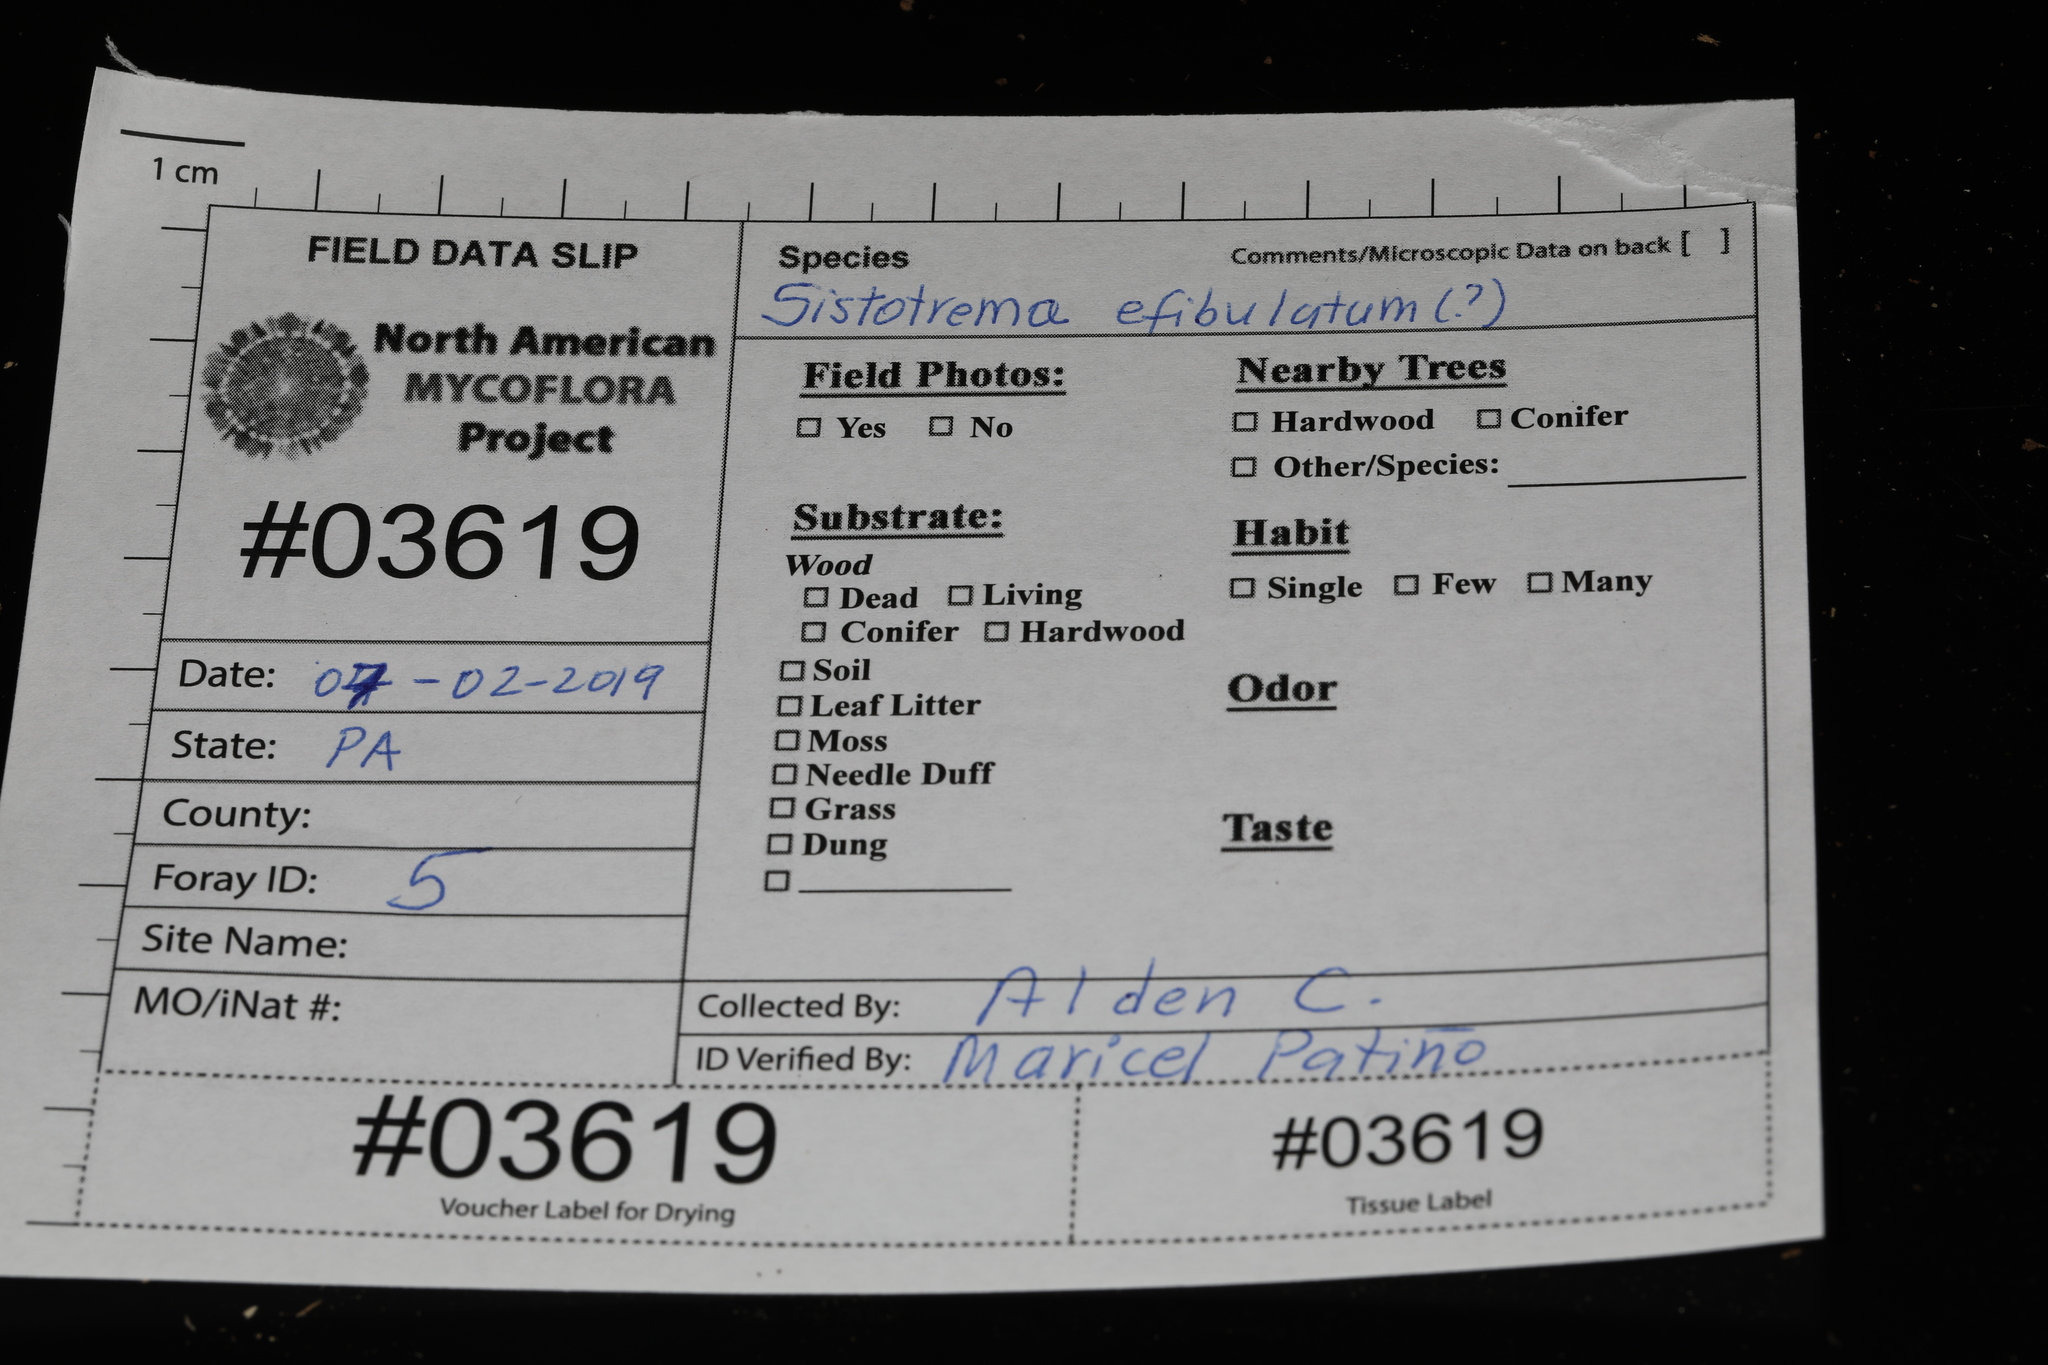 1 cm
FIELD DATA SLIP
North American
MYCOFLORA
Project
#03619
Date: -02-2019
State: PA
County:
Foray ID: 5
Site Name:
MO/iNat #:
Species
Comments/Microscopic Data on back [ ]
Sistotrema efibulatum (?)
Field Photos:
☐ Yes ☐ No
Substrate:
Wood
☐ Dead ☐ Living
☐ Conifer ☐ Hardwood
☐ Soil
☐ Leaf Litter
☐ Moss
☐ Needle Duff
☐ Grass
☐ Dung
☐
Nearby Trees
☐ Hardwood ☐ Conifer
☐ Other/Species:
Habit
☐ Single ☐ Few ☐ Many
Odor
Taste
Collected By: Alden C.
ID Verified By: Maricel Patiño
#03619
Voucher Label for Drying
#03619
Tissue Label